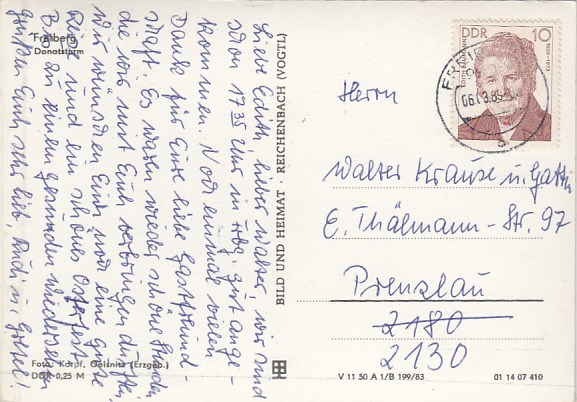 Freiberg
Donatsturm
Liebe Edith, lieber Walter, wir sind
schon 17³⁵ Uhr in Fbg. gut ange-
kommen. Noch einmal vielen
Dank für Eure liebe Gastfreund-
schaft. Es waren wieder schöne Stunden
die wir mit Euch verbringen durften.
Wir wünschen Euch noch eine gute
und ein schönes Osterfest
Bis zu einem gesunden Wiedersehen
grüßen Euch sehr lieb, Rudi u. Gretel!
Foto: Karpf, Oelsnitz (Erzgeb.)
DDR 0,25 M
BILD UND HEIMAT · REICHENBACH (VOGTL)
DDR 10
06.03.89
Herrn
Walter Krause u. Gattin
E. Thälmann-Str. 97
Prenzlau
2180
2130
V 11 50 A 1/B 199/83
01 14 07 410